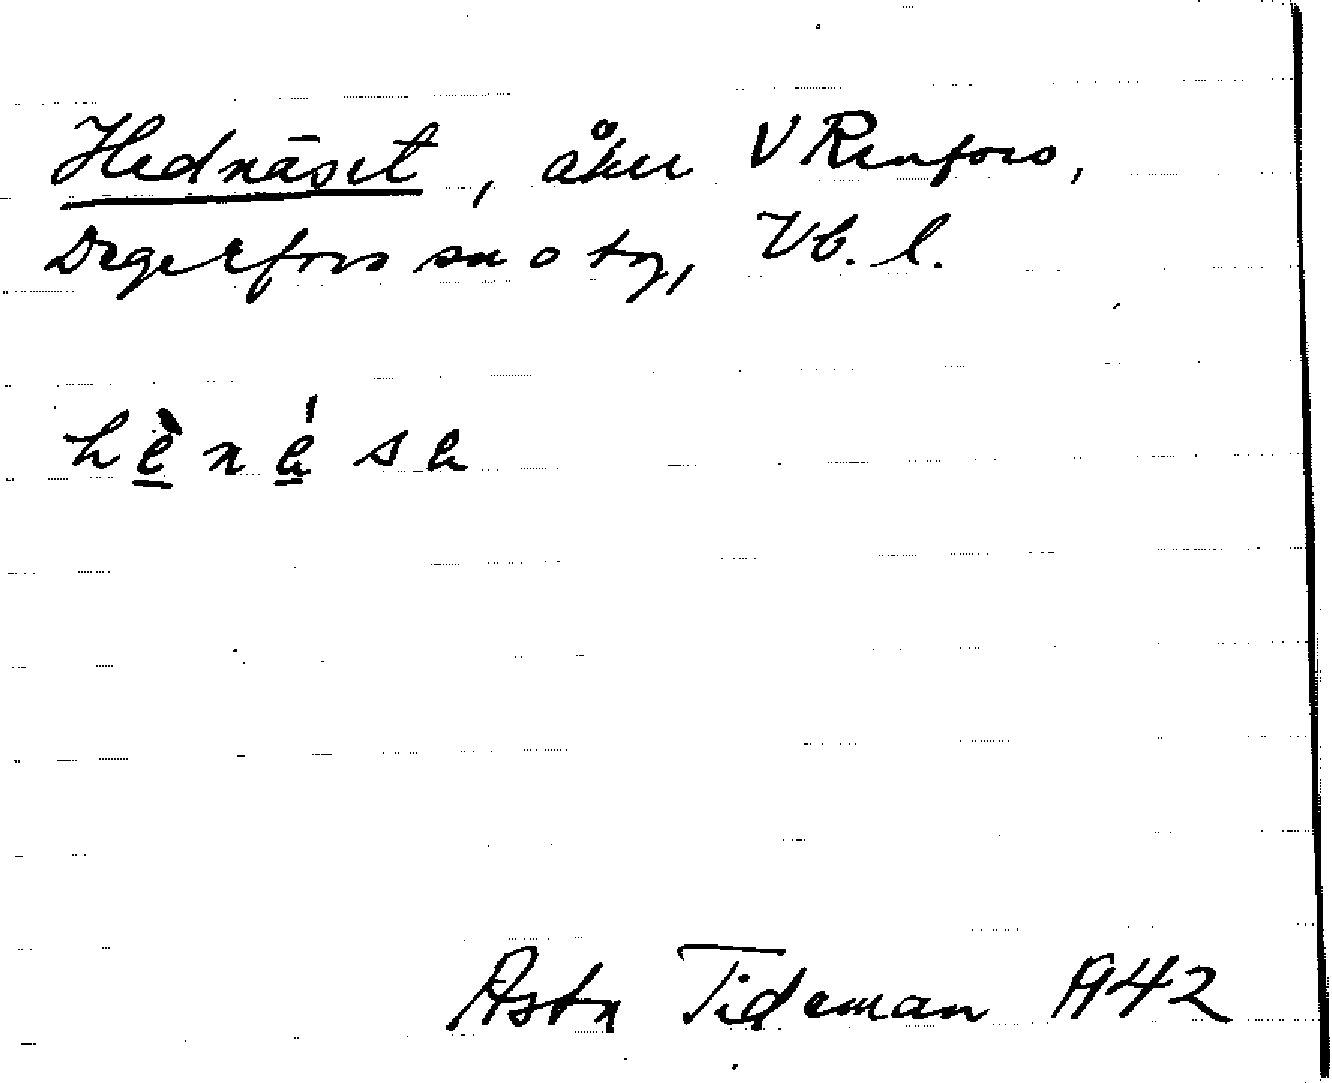 Hednäset, åker V Renfors,
Degerfors sn o tg, Vb. l.
hènésa
Asta Tideman 1942